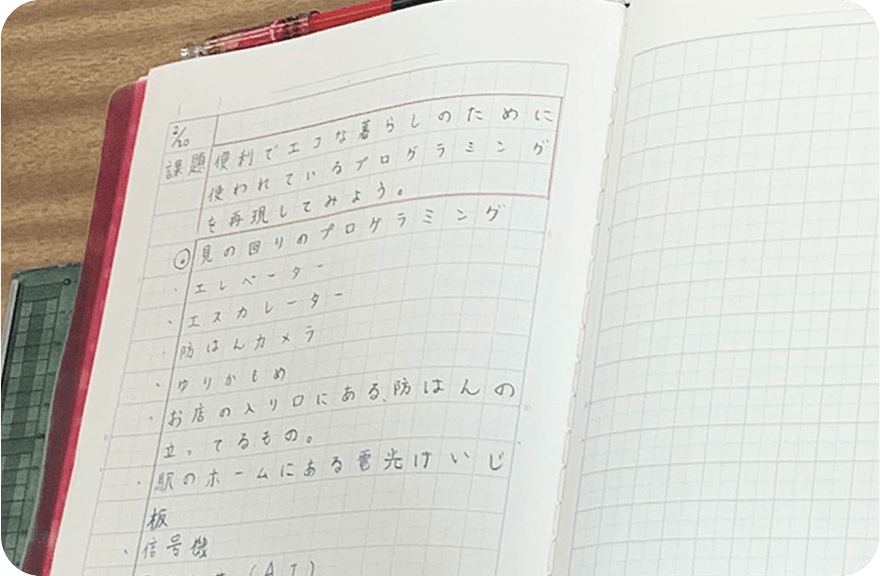 2/20
課題 便利でエコな暮らしのために
使われているプログラミング
を再現してみよう。
見の回りのプログラミング
・エレベーター
・エスカレーター
・防はんカメラ
・ゆりかもめ
・お店の入り口にある、防はんの
立ってるもの。
・駅のホームにある電光けいじ
板
・信号機
(AI)